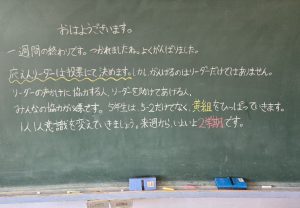 おはようございます。
一週間の終わりです。つかれましたね。よくがんばりました。
応えんリーダーは投票にて決めます。しかし、がんばるのはリーダーだけではありません。
リーダーの声かけに協力する人、リーダーを助けてあげる人、
みんなの協力が必要です。5年生は、5-2だけでなく、黄組をひっぱっていきます。
1人1人意識を変えていきましょう。来週から、いよいよ2学期です。